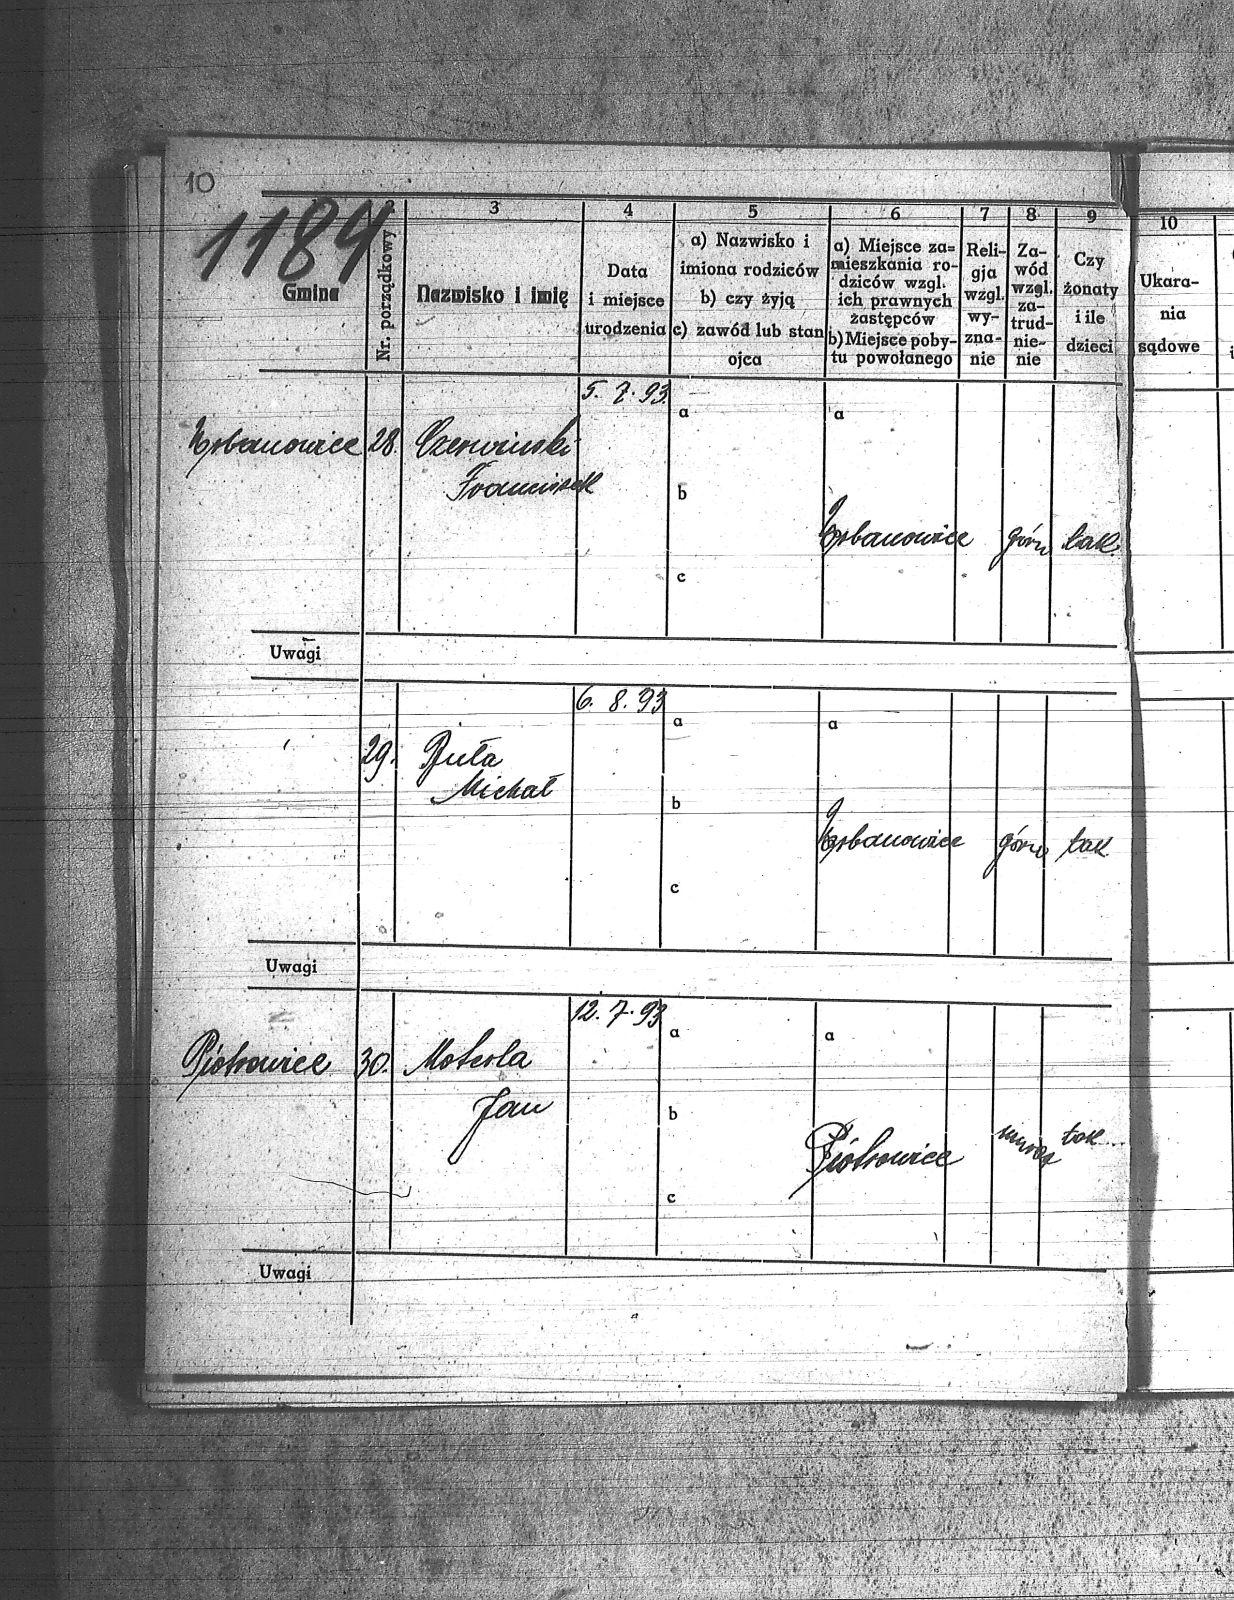 10
1184
2 3 4 5 6 7 8 9 10
Gmina
Nr. porządkowy
Nazwisko i imię
Data
i miejsce
urodzenia
a) Nazwisko i
imiona rodziców
b) czy żyją
c) zawód lub stan
ojca
a) Miejsce za=
mieszkania ro-
dziców wzgl.
ich prawnych
zastępców
b) Miejsce poby-
tu powołanego
Reli-
gja
wzgl.
wy-
zna-
nie
Za-
wód
wzgl.
za-
trud-
nie-
nie
Czy
żonaty
i ile
dzieci
Ukara-
nia
sądowe
5. 7. 93.
a a
Urbanowice 28. Czerwinski
Franciszek
b
Urbanowice górn tak
c
Uwagi
6. 8. 93
a a
29. Ryła
Michał
b
Urbanowice górn tak
c
Uwagi
12. 7. 93
a a
Piotrowice 30. Moterla
Jan
b
Piotrowice tak
c
Uwagi